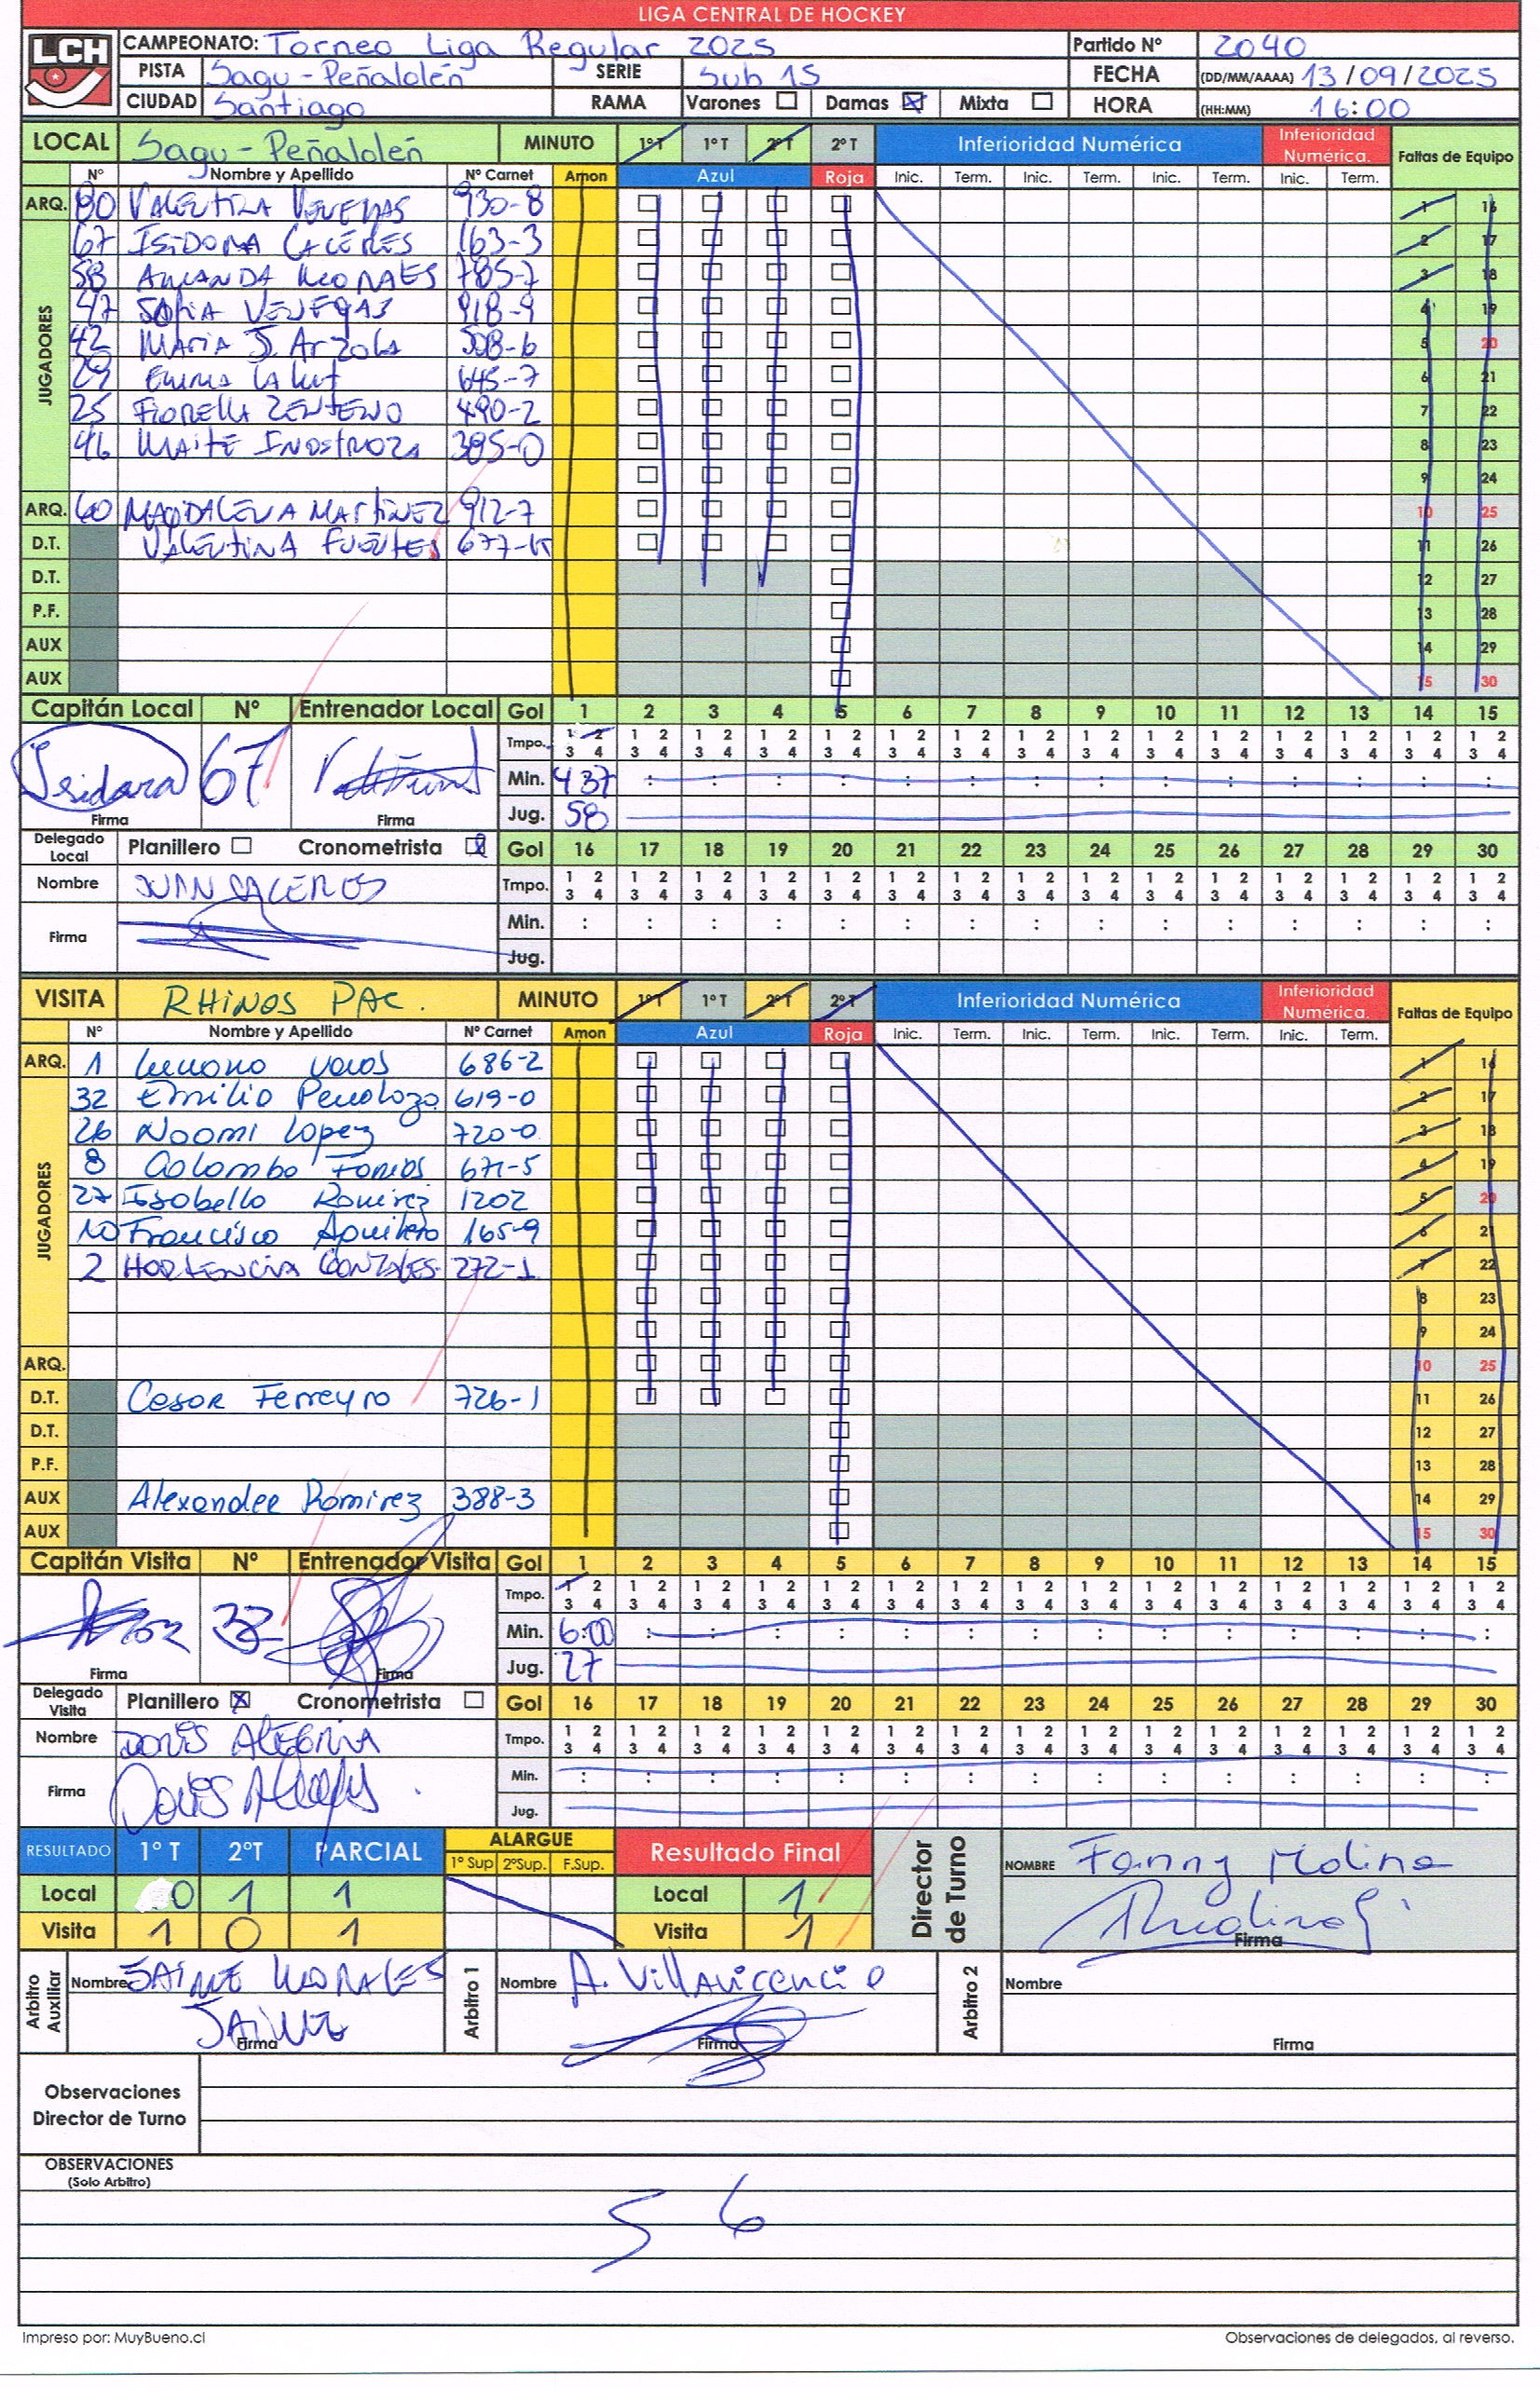 LIGA CENTRAL DE HOCKEY
LCH CAMPEONATO: Torneo Liga Regular 2025 Partido Nº 2040
PISTA Sagu-Peñalolén SERIE Sub 15 FECHA (DD/MM/AAAA) 13/09/2025
CIUDAD Santiago RAMA Varones Damas Mixta HORA (HH:MM) 16:00
LOCAL Sagu-Peñalolén MINUTO 1ºT 1ºT 2ºT 2ºT Inferioridad Numérica Inferioridad Numérica. Faltas de Equipo
Nº Nombre y Apellido Nº Carnet Amon Azul Roja Inic. Term. Inic. Term. Inic. Term. Inic. Term.
ARQ. 80 VALENTINA VENEGAS 930-8 1 16
JUGADORES
67 ISIDORA CACÉRES 163-3 2 17
58 AMANDA MORALES 785-7 3 18
47 SOFIA VENEGAS 918-9 4 19
42 MARIA J. Arzola 508-6 5 20
29 645-7 6 21
25 FIORELLA ZENTENO 490-2 7 22
46 MAITE INOSTROZA 385-0 8 23
9 24
ARQ. 60 MAGDALENA MARTINEZ 912-7 10 25
D.T. VALENTINA FUENTES 677-K 11 26
D.T. 12 27
P.F. 13 28
AUX 14 29
AUX 15 30
Capitán Local Nº Entrenador Local Gol 1 2 3 4 5 6 7 8 9 10 11 12 13 14 15
Isidora 67 Tmpo. 1 2 1 2 1 2 1 2 1 2 1 2 1 2 1 2 1 2 1 2 1 2 1 2 1 2 1 2 1 2
3 4 3 4 3 4 3 4 3 4 3 4 3 4 3 4 3 4 3 4 3 4 3 4 3 4 3 4 3 4
Min. 4:37 : : : : : : : : : : : : : :
Firma Firma Jug. 58
Delegado Local Planillero Cronometrista Gol 16 17 18 19 20 21 22 23 24 25 26 27 28 29 30
Nombre JUAN CACERES Tmpo. 1 2 1 2 1 2 1 2 1 2 1 2 1 2 1 2 1 2 1 2 1 2 1 2 1 2 1 2 1 2
3 4 3 4 3 4 3 4 3 4 3 4 3 4 3 4 3 4 3 4 3 4 3 4 3 4 3 4 3 4
Firma Min. : : : : : : : : : : : : : : :
Jug.
VISITA RHINOS PAC. MINUTO 1ºT 1ºT 2ºT 2ºT Inferioridad Numérica Inferioridad Numérica. Faltas de Equipo
Nº Nombre y Apellido Nº Carnet Amon Azul Roja Inic. Term. Inic. Term. Inic. Term. Inic. Term.
ARQ. 1 686-2 1 16
JUGADORES
32 Emilia Penaloza 619-0 2 17
26 Noomi Lopez 720-0 3 18
8 Colomba 671-5 4 19
27 Isabella Ramirez 1202 5 20
10 Francisca 165-9 6 21
2 HORTENCIA GONZALES 272-1 7 22
8 23
9 24
ARQ. 10 25
D.T. Cesar Ferreyra 726-1 11 26
D.T. 12 27
P.F. 13 28
AUX Alexander Ramirez 388-3 14 29
AUX 15 30
Capitán Visita Nº Entrenador Visita Gol 1 2 3 4 5 6 7 8 9 10 11 12 13 14 15
32 Tmpo. 1 2 1 2 1 2 1 2 1 2 1 2 1 2 1 2 1 2 1 2 1 2 1 2 1 2 1 2 1 2
3 4 3 4 3 4 3 4 3 4 3 4 3 4 3 4 3 4 3 4 3 4 3 4 3 4 3 4 3 4
Min. 6:00 : : : : : : : : : : : : : :
Firma Firma Jug. 27
Delegado Visita Planillero Cronometrista Gol 16 17 18 19 20 21 22 23 24 25 26 27 28 29 30
Nombre DORIS ALEGRIA Tmpo. 1 2 1 2 1 2 1 2 1 2 1 2 1 2 1 2 1 2 1 2 1 2 1 2 1 2 1 2 1 2
3 4 3 4 3 4 3 4 3 4 3 4 3 4 3 4 3 4 3 4 3 4 3 4 3 4 3 4 3 4
Firma Min. : : : : : : : : : : : : : : :
Jug.
RESULTADO 1º T 2ºT PARCIAL ALARGUE Resultado Final Director de Turno NOMBRE Fanny Molina
1º Sup 2ºSup. F.Sup.
Local 0 1 1 Local 1
Visita 1 0 1 Visita 1 Firma
Arbitro Auxiliar Nombre JAIME MORALES Arbitro 1 Nombre A. Villavicencio Arbitro 2 Nombre
JAIME
Firma Firma Firma
Observaciones
Director de Turno
OBSERVACIONES
(Solo Arbitro)
5 6
Impreso por: MuyBueno.cl Observaciones de delegados, al reverso.